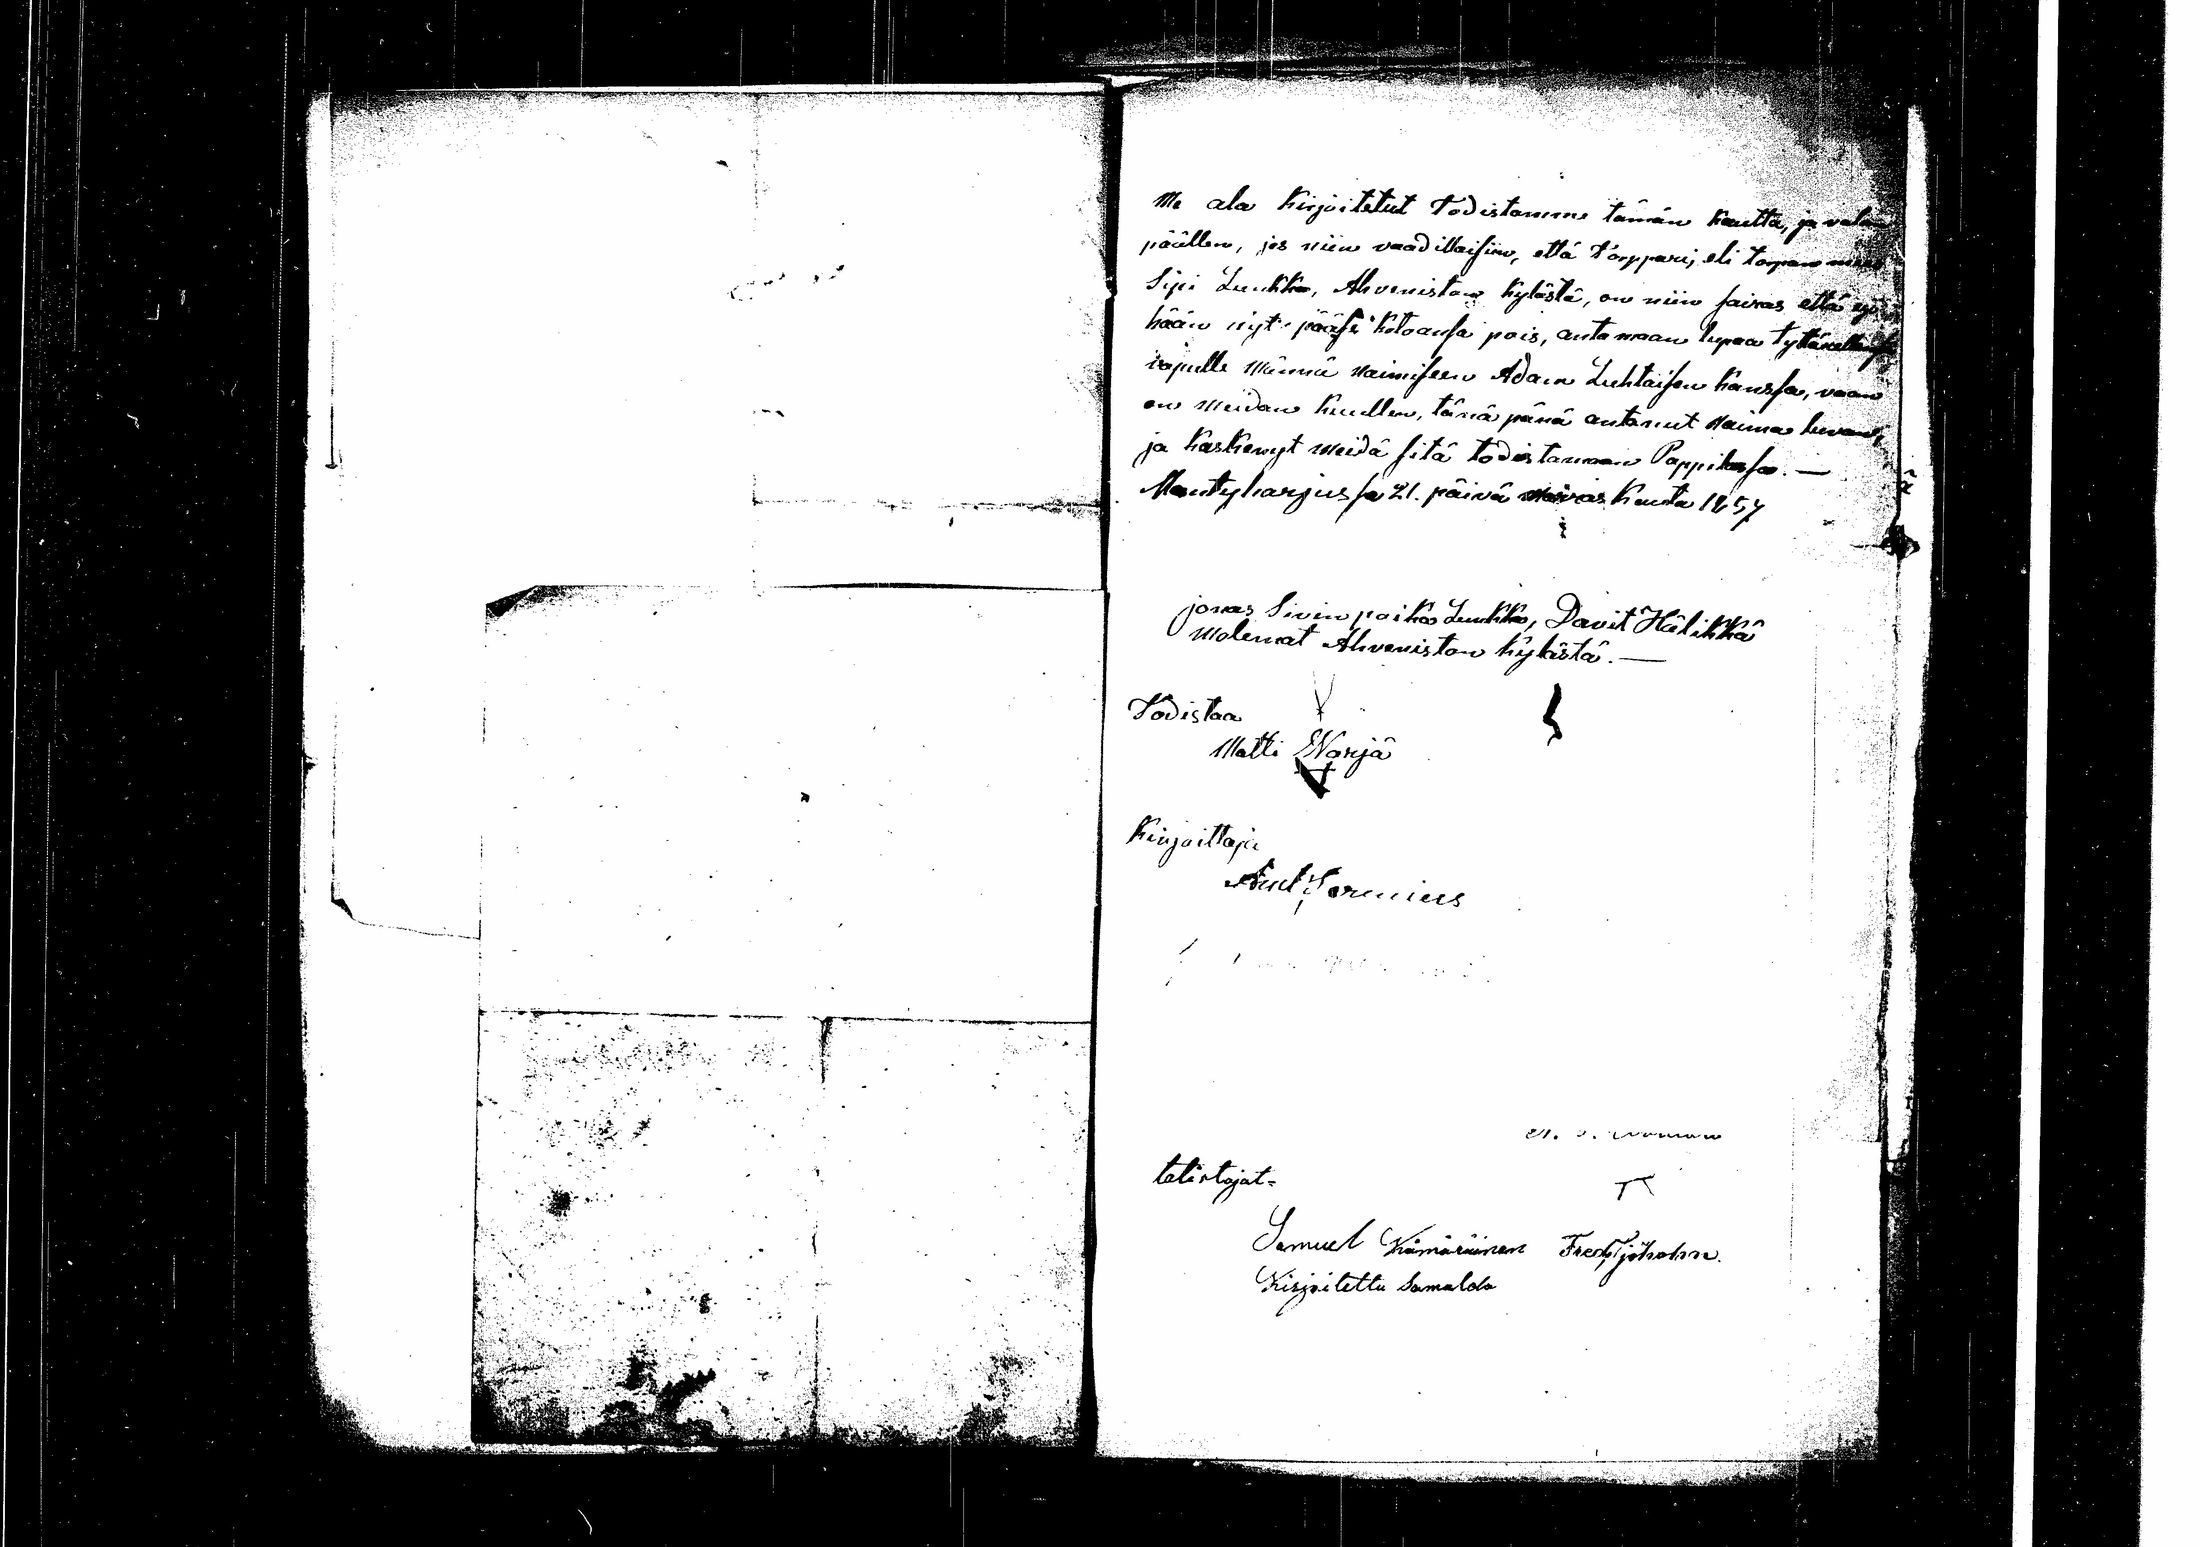 Me ala Kirjoitetut Todistamme tämän kautta, ja valan
päällen, jos niin vaadittaisiin, että torppari, eli torpan mies
Sipi Luukko, Ahveniston kylästä, on niin sairas että ej
hään nyt pääse kotoansa pois, antamaan lupaa Tyttärellensä
männä naimiseen Adam Luhtaisen kanssa, vaan
on Meidän kuullen, tänä pänä antanut Naima luvan,
ja käskenyt Meidä sitä todistamaan Pappilassa. —
Mäntyharjussa 21. päivä Marras kuuta 1857
jonas Sivin poika Luukko, Davit Hälikkä
Molemat Ahveniston kylästä. —
Todistaa
Matti Warjä
Kirjoittaja
teistojat=
Samuel Kämäräinen Fred Sjöholm.
Kirjoitettu Samalda